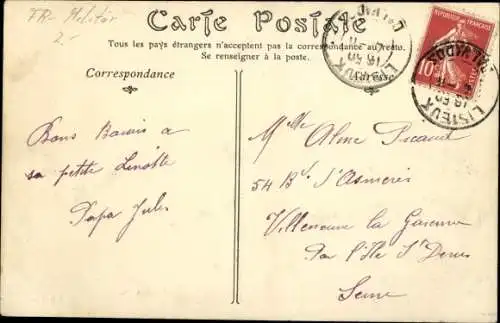 FR- Militär
2.-
Carte Postale
Tous les pays étrangers n'acceptent pas la correspondance au recto.
Se renseigner à la poste.
Correspondance
Adresse
RÉPUBLIQUE FRANÇAISE
10
LISIEUX
CALVADOS
LISIEUX
Bons Baisers a
sa petite Linotte
Papa Jules
Mlle Alme Picaud
54 Bd d'Asnieres
Villeneuve la Garenne
Par l'Ile St Denis
Seine